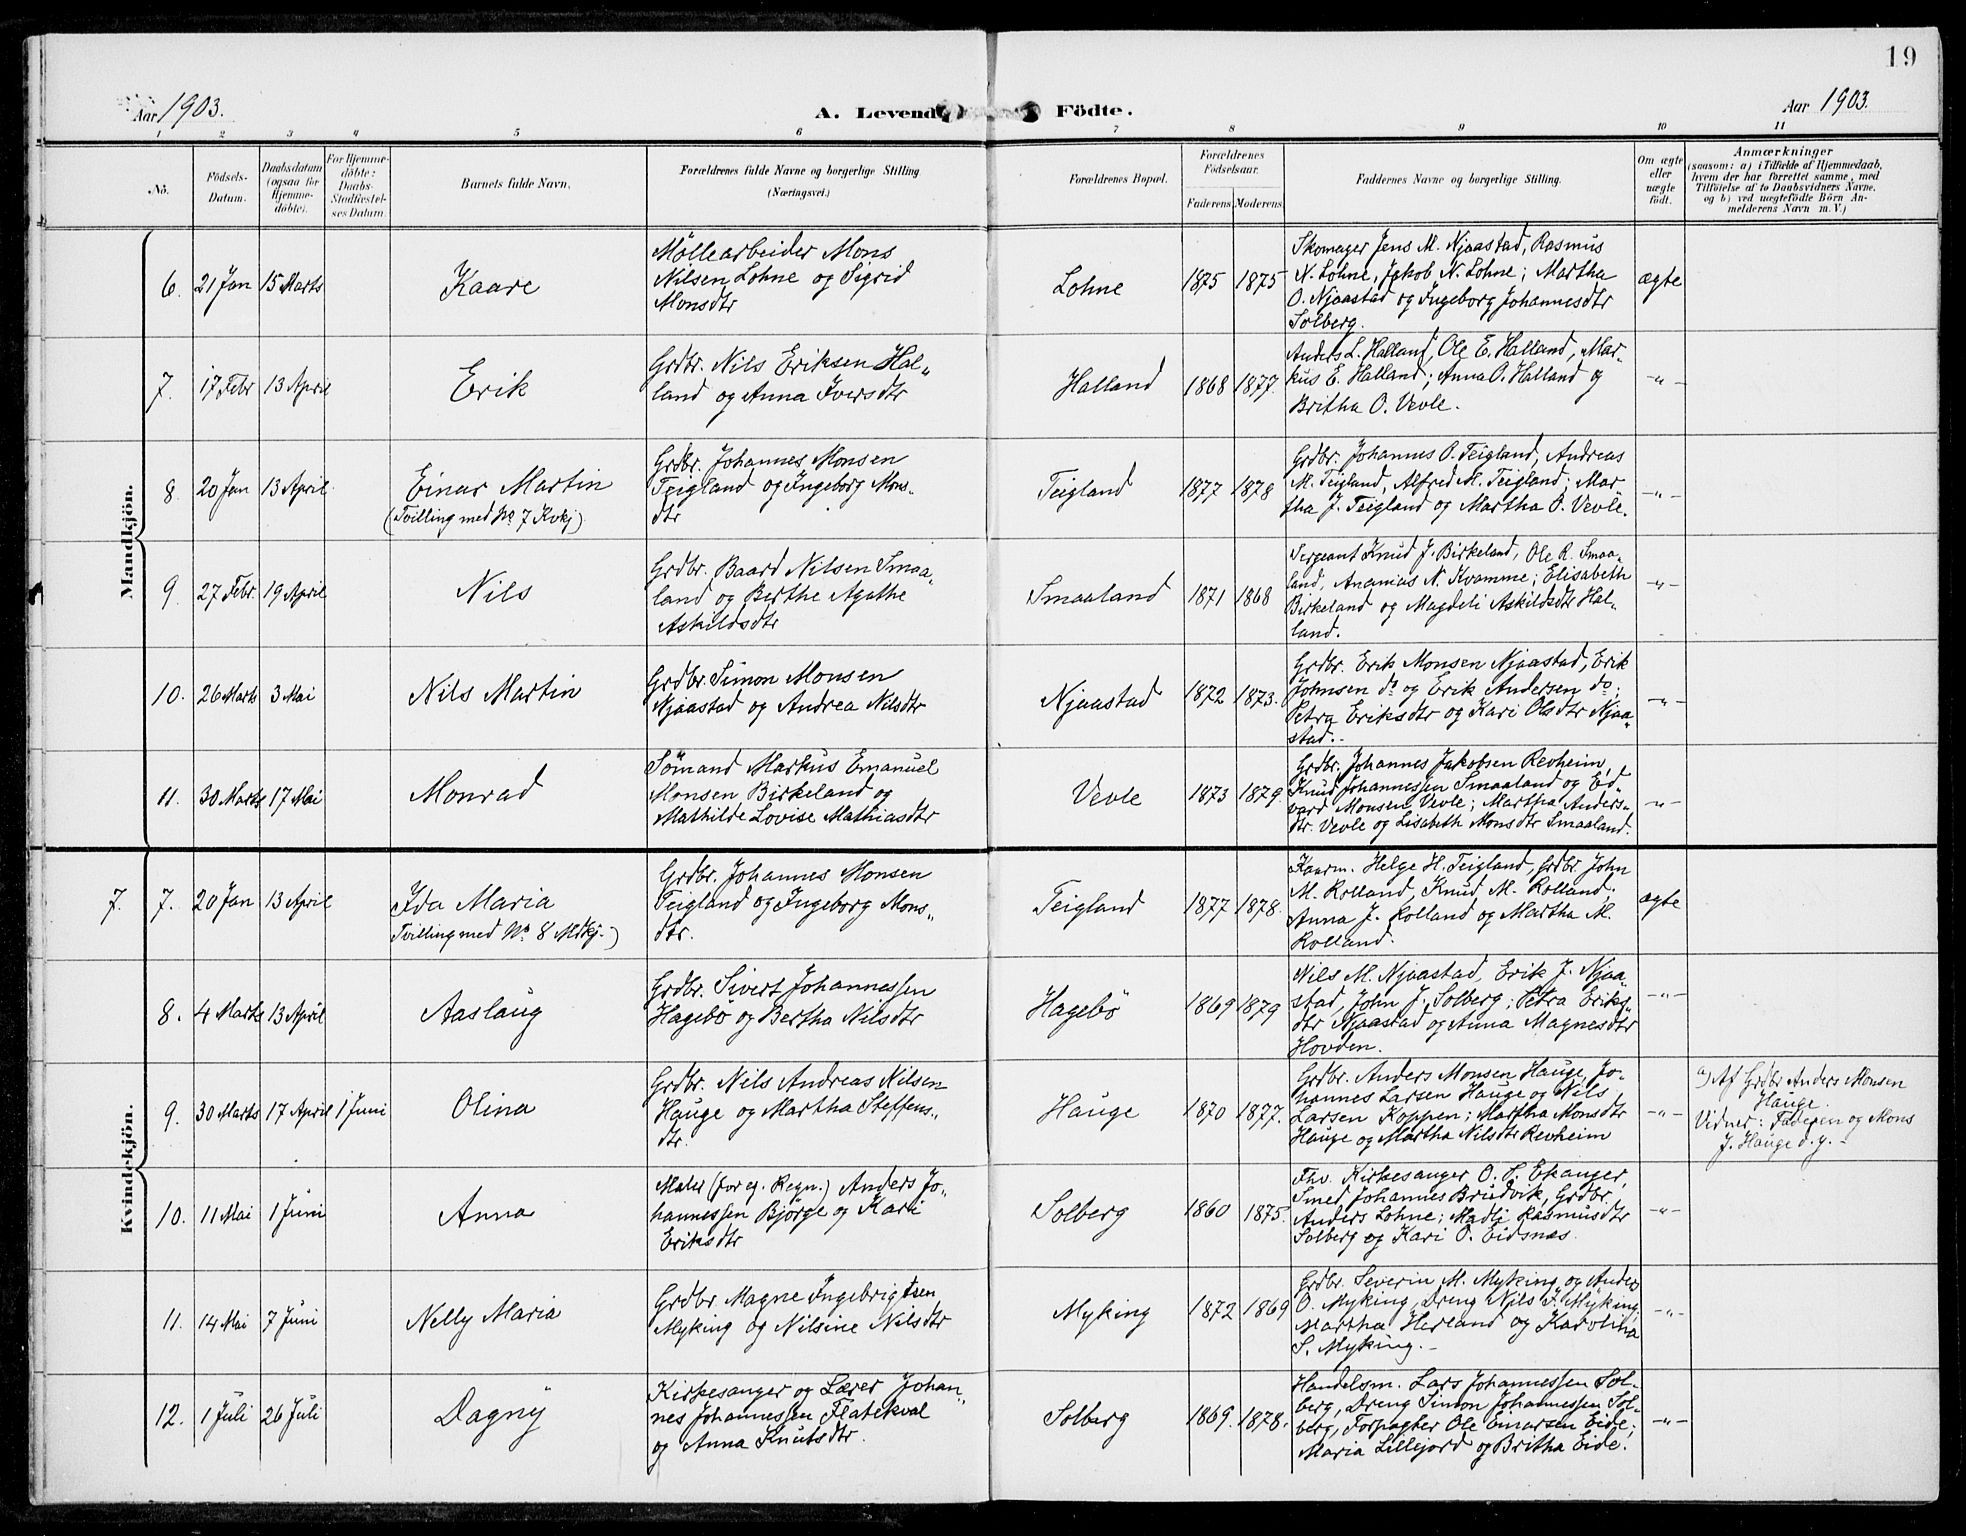 19
Aar 1903.
A. Levende Födte.
Aar 1903.
1 2 3 4 5 6 7 8 9 10 11
No.
Födsels-
Datum.
Daabsdatum
(ogsaa for
Hjemme-
döbte).
For Hjemme-
döbte:
Daabs-
Stadfæstel-
ses Datum.
Barnets fulde Navn.
Forældrenes fulde Navne og borgerlige Stilling
(Næringsvei.)
Forældrenes Bopæl.
Forældrenes
Födselsaar.
Faderens Moderens
Faddernes Navne og borgerlige Stilling.
Om ægte
eller
uægte
födt.
Anmærkninger
(saasom: a) i Tilfælde af Hjemmedaab,
hvem der har forrettet samme, med
Tilföielse af to Daabsvidners Navne,
og b) ved uægtefödte Börn An-
melderens Navn m. V.)
Mandkjön.
6. 21 Jan 15 Marts
Kaare
Möllearbeider Mons
Nilsen Lohne og Sigrid
Monsdtr
Lohne
1875 1875
Skomager Jens M. Njaastad, Rasmus
N. Lohne, Jakob N. Lohne; Martha
O. Njaastad og Ingeborg Johannesdtr
Solberg.
ægte
7. 17 Febr 13 April
Erik
Grdbr. Nils Eriksen Hal-
land og Anna Iversdtr
Halland
1868 1877.
Anders L. Halland, Ole E. Halland, Mar-
kus E. Halland; Anna O. Halland og
Britha O. Vevle.
-"-
8. 20 Jan 13 April
Einar Martin
(Tvilling med No 7 Kvkj)
Grdbr. Johannes Monsen
Teigland og Ingeborg Mons-
dtr
Teigland
1877 1878
Grdbr. Johannes O. Teigland, Andreas
M. Teigland, Alfred M. Teigland; Mar
tha J. Teigland og Martha O. Vevle.
-"-
9. 27 Febr. 19 April
Nils
Grdbr. Baard Nilsen Smaa-
land og Berthe Agathe
Askildsdtr
Smaaland
1871 1868
Sergeant Knud J. Birkeland, Ole R. Smaa-
land, Ananias N. Kvamme; Elisabeth
Birkeland og Magdeli Askildsdtr Hal-
land.
-"-
10. 26 Marts 3 Mai
Nils Martin
Grdbr. Simon Monsen
Njaastad og Andrea Nilsdtr
Njaastad
1872 1873.
Grdbr. Erik Monsen Njaastad, Erik
Johnsen do og Erik Andersen do;
Petra Eriksdtr og Kari Olsdtr Njaa-
stad.-
-"-
11. 30 Marts 17 Mai
Monrad
Sömand Markus Emanuel
Monsen Birkeland og
Mathilde Lovise Mathiasdtr
Vevle
1873 1879.
Grdbr. Johannes Jakobsen Revheim,
Knud Johannessen Smaaland og Ed-
vard Monsen Vevle; Martha Anders-
dtr. Vevle og Lisabeth Monsdtr Smaaland.
-"-
Kvindekjön.
7. 7. 20 Jan 13 April
Ida Maria
Tvilling med No 8 Mdkj.)
Grdbr. Johannes Monsen
Teigland og Ingeborg Mons-
dtr.
Teigland
1877 1878.
Kaarm. Helge H. Teigland, Grdbr. John
M. Rolland, Knud M. Rolland;
Anna J. Rolland og Martha M.
Rolland.
ægte
8. 4 Marts 13 April
Aaslaug
Grdbr. Sivert Johannessen
Hagebö og Bertha Nilsdtr
Hagebö
1869 1879
Nils M. Njaastad, Erik J. Njaa-
stad, John J. Solberg; Petra Eriks-
dtr Njaastad og Anna Magnesdtr
Hovden.
-"-
9. 30 Marts 17 April 1 Juni
Olina
Grdbr. Nils Andreas Nilsen
Hauge og Martha Steffens-
dtr.
Hauge
1870 1877.
Grdbr. Anders Monsen Hauge, Jo-
hannes Larsen Hauge og Nils
Larsen Koppen; Martha Monsdtr
Hauge og Martha Nilsdtr Revheim
-"-
a) Af Grdbr Anders Monsen
Hauge.
Vidner: Faderen og Mons
J. Hauge d.y.-
10. 11 Mai 1 Juni
Anna
Maler (for eg. Regn.) Anders Jo-
hannessen Björge og Kari
Eriksdtr
Solberg
1860 1875.
Fhv. Kirkesanger O. S. Ekanger,
Smed Johannes Brudvik, Grdbr.
Anders Lohne; Madli Rasmusdtr
Solberg og Kari O. Eidsnæs.
-"-
11. 14 Mai 7 Juni
Nelly Maria
Grdbr. Magne Ingebrigtsen
Myking og Nilsine Nilsdtr
Myking
1872 1869
Grdbr. Severin M. Myking og Anders
O. Myking, Dreng Nils I. Myking;
Martha Herland og Karolina
S. Myking.-
-"-
12. 1 Juli 26 Juli
Dagny
Kirkesanger og Lærer Johan-
nes Johannessen Flatekval
og Anna Knutsdtr.
Solberg
1869. 1878.
Handelsm. Lars Johannessen Sol-
berg, Dreng Simon Johannessen Sol-
berg, Forpagter Ole Einarsen Eide;
Maria Lillejord og Britha Eide.
-"-